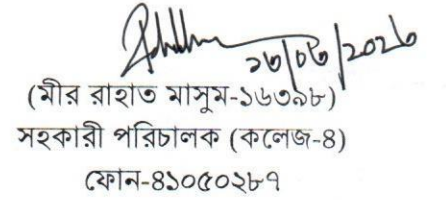 (মীর রাহাত মাসুম-১৬৩৯৮)
সহকারী পরিচালক (কলেজ-৪)
ফোন-৪১০৫০২৮৭